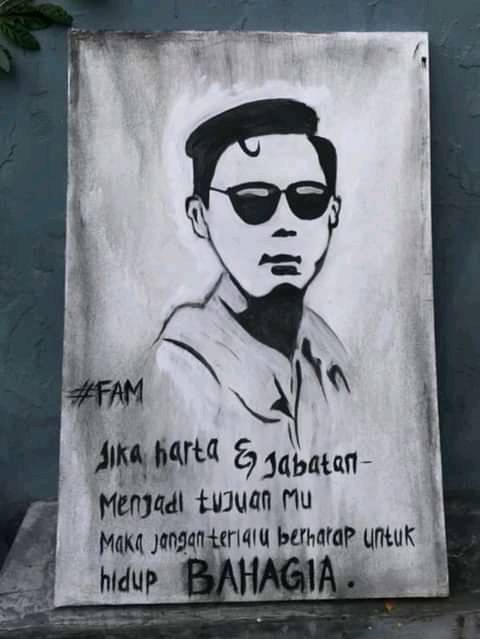 #FAM
Jika harta & Jabatan-
Menjadi tujuan Mu
Maka jangan terlalu berharap untuk
hidup BAHAGIA.